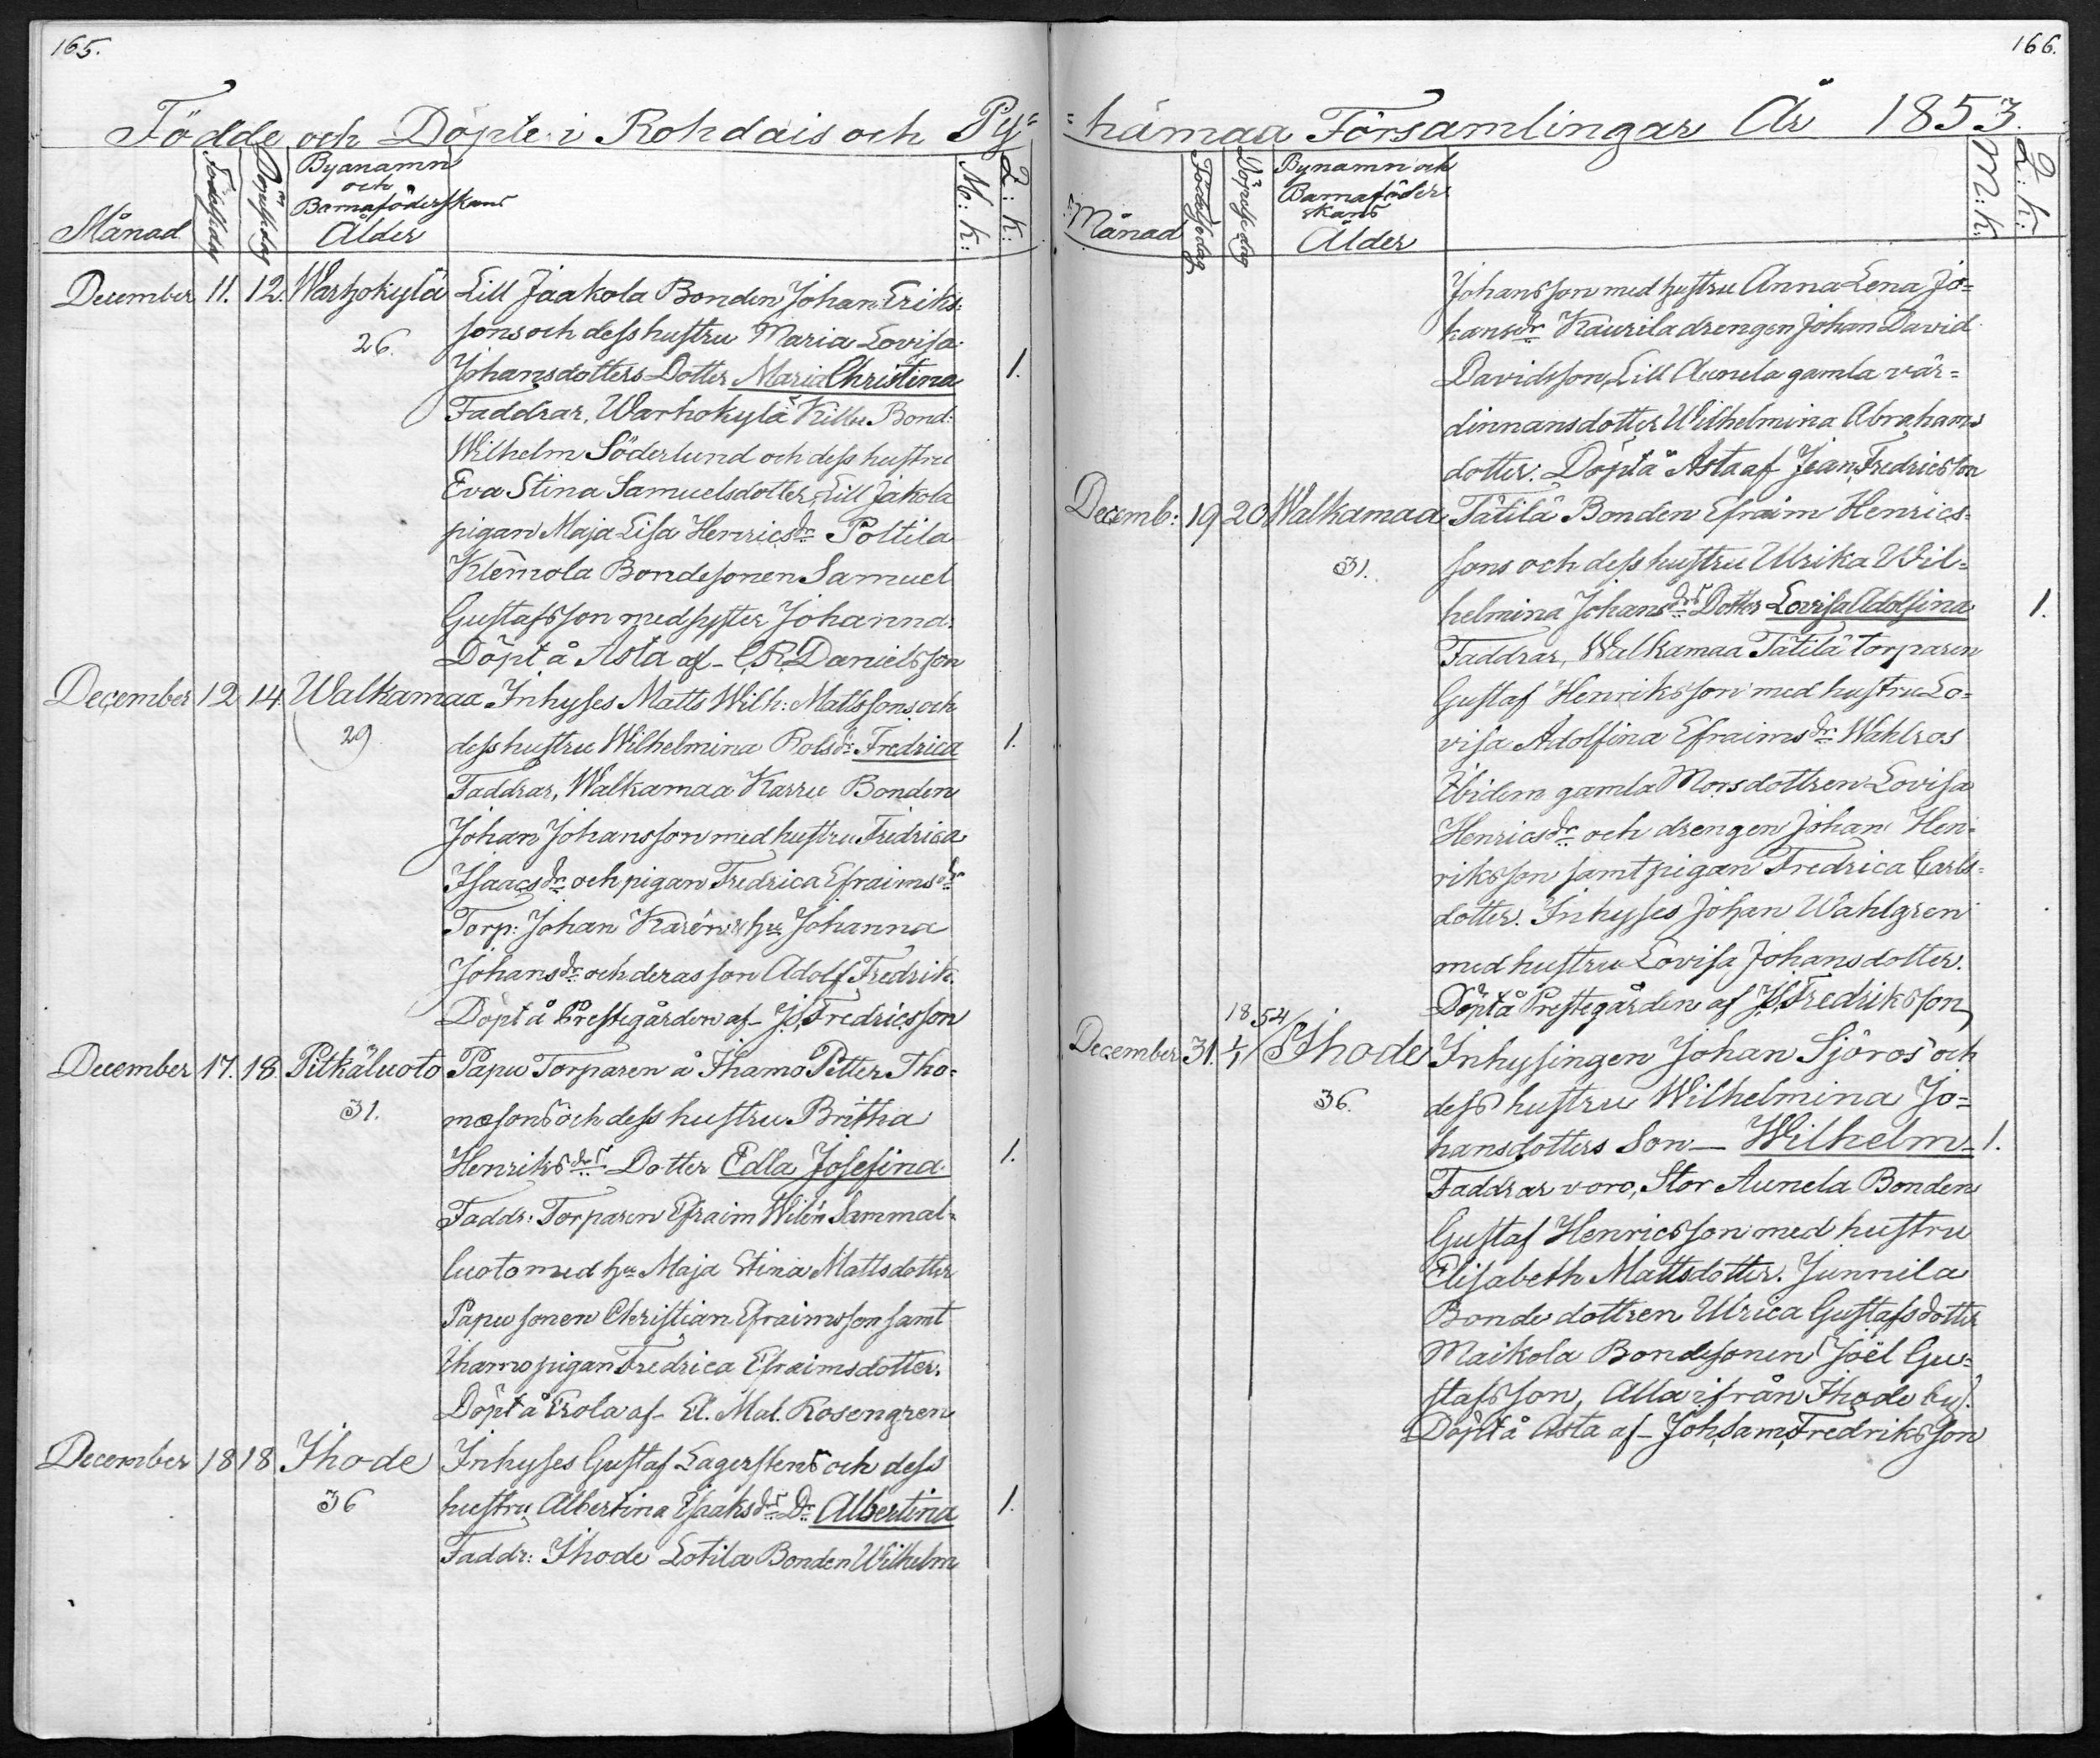 165.
Födde och Döpte i Rohdais och Py=
Månad
Födelsedag
Döpelsedag
Byanamn
och
Barnaföderskans
Ålder
M: k:
Q: k:
December 11. 12. Warhokylä Lill Jaakola Bonden Johan Eriks:
26. sons och dess hustru Maria Lovisa
Johansdotters Dotter Maria Christina 1.
Faddrar, Warhokylä Killu Bond:
Wilhelm Söderlund och dess hustru
Eva Stina Samuelsdotter, Lill Jakola
pigan Maja Lisa Henricsdr Poltila
Klemola Bondesonen Samuel
Gustafsson med syster Johanna.
Döpt å Asta af C. R. Danielsson
December 12 14. Walkamaa Inhyses Matts Wilh: Mattssons och
29 dess hustru Wilhelmina Rolsdr: Fredrica 1.
Faddrar, Walkamaa Karru Bonden
Johan Johansson med hustru Fredrica
Isaacsdr och pigan Fredrica Efraimsdr
Torp: Johan Karén & hu Johanna
Johansdr och deras son Adolf Fredrik.
Döpt å Prestegården af J. Fredricsson
December 17. 18. Pitkäluoto Papu Torparen å Ihamo Petter Tho=
31. masons och dess hustru Britha
Henriksdrs Dotter Edla Josefina 1.
Faddr: Torparen Efraim Wilén Sammal=
luoto med hu Maja Stina Mattsdotter
Papu sonen Christian Efraimsson samt
Ihamo pigan Fredrica Efraimsdotter.
Döpt å Erola af El. Mal. Rosengren
December 18 18 Ihode Inhyses Gustaf Lagerstens och dess
36 hustru Albertina Isaksdrs Dr Albertina 1.
Faddr: Ihode Lotila Bonden Wilhelm
166.
=hämaa Församlingar År 1853.
Månad
Födelsedag
Döpelsedag
Bynamn och
Barnaföder
skans
Ålder
M: k:
Q: k:
Johansson med hustru Anna Lena Jo=
hansdr Kaurila drengen Johan David
Davidsson, Lill Aunela gamla vär=
dinnans dotter Wilhelmina Abrahams
dotter. Döpt å Asta af Jean Fredricsson
Decemb: 19 20 Walkamaa Tätilä Bonden Efraim Henrics=
31. sons och dess hustru Ulrika Wil=
helmina Johansdrs Dotter Lovisa Adolfina 1.
Faddrar, Walkamaa Tätilä torparen
Gustaf Henriksson med hustru Lo=
visa Adolfina Efraimsdr Wahlros
Ibidem gamla Morsdottren Lovisa
Henricsdr och drengen Johan Hen=
riksson samt pigan Fredrica Carls=
dotter. Inhyses Johan Wahlgren
med hustru Lovisa Johansdotter.
Döpt å Prestegården af J. Fredriksson
1854
December 31. 1/1 Ihode Inhysingen Johan Sjöros och
36. dess hustru Wilhelmina Jo=
hansdotters Son — Wilhelm 1.
Faddrar voro, Stor Aunela Bonden
Gustaf Henricsson med hustru
Elisabeth Mattsdotter. Junnila
Bonde dottren Ulrica Gustafsdotter
Maikola Bondesonen Joël Gu=
stafsson, Alla ifrån Ihode by.
Döpt å Asta af Joh. Sam. Fredriksson